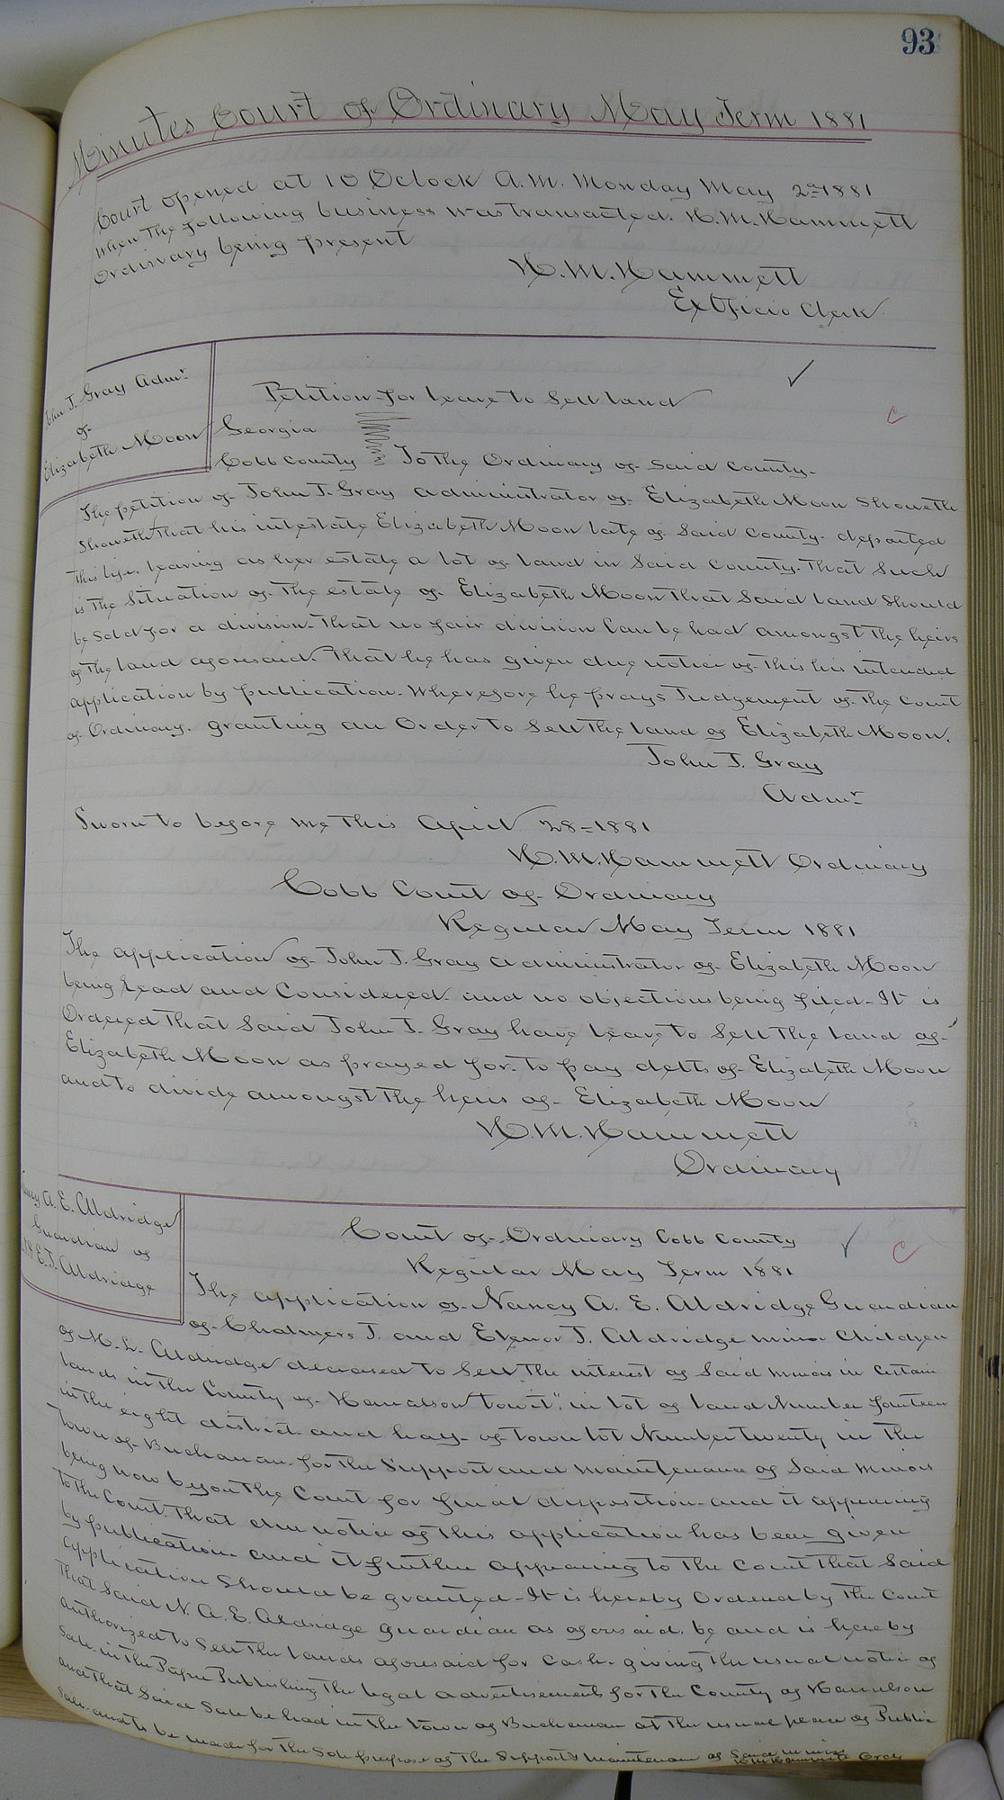 93
Minutes Court of Ordinary May Term 1881
Court opened at 10 Oclock A.M. Monday May 2nd 1881
when the following business was transacted. H.M. Hammett
Ordinary being present
H.M. Hammett
Exoficio Clerk
John T. Gray Admr
of
Elizabeth Moon
Petition for leave to Sell land
Georgia
Cobb County To the Ordinary of said County.
The petition of John T. Gray administrator of Elizabeth Moon Showeth
Showeth that his intestate Elizabeth Moon late of said County departed
this life. leaving as her estate a lot of land in said County. That such
is the situation of the estate of Elizabeth Moon that said land should
be sold for a division. That no fair division can be had amongst the heirs
of the land aforesaid. That he has given due notice of this his intended
application by publication. Wherefore he prays Judgement of the Court
of Ordinary. granting an Order to Sell the land of Elizabeth Moon.
John T. Gray
Admr
Sworn to before me this April 28=1881
H.M. Hammett Ordinary
Cobb Court of Ordinary
Regular May Term 1881
The application of John T. Gray administrator of Elizabeth Moon
being read and Considered. and no objections being filed. It is
Ordered that said John T. Gray have leave to sell the land of
Elizabeth Moon as prayed for. to pay debts of Elizabeth Moon
and to divide amongst the heirs of Elizabeth Moon
H.M. Hammett
Ordinary
Nancy A. E. Aldridge
Guardian of
E.T. Aldridge
Court of Ordinary Cobb County
Regular May Term 1881
The application of Nancy A. E. Aldridge Guardian
of Chalmers T. and Elenor T. Aldridge minor Children
of M. L. Aldridge deceased to Sell the interest of said minors in certain
lands in the County of Haralson "towit". in lot of land Number fourteen
in the eight district and half of town lot Number twenty in the
town of Buchanan. for the Support and maintenance of said minors
being now before the Court for final disposition and it appearing
to the Court that due notice of this application has been given
by publication. and it further appearing to the Court that said
application should be granted. It is hereby Ordered by the Court
that said N. A. E. Aldridge guardian as aforesaid. be and is hereby
authorized to Sell the lands aforesaid for Cash. giving the usual notice of
Sale in the Paper Publishing the legal advertisements for the County of Haralson
and that said sale be had in the town of Buchanan at the usual place of Public
Sale. and to be made for the sole purpose of the Support & maintenance of said minors
H.M. Hammett Ordy